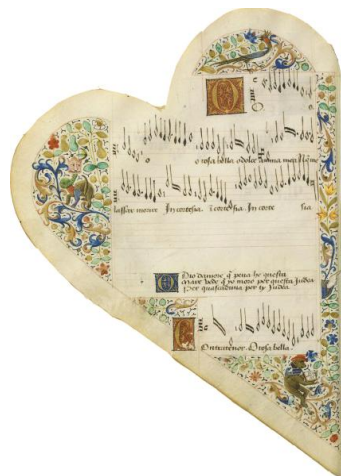 O
o rosa bella odolce anima mea Nō me
lassar morire In cortesia. In cortesia. In corte sia
Dio damore q̄ pena he questa
Vede q̄ io moro per questa Iudea
Contratenor. O rosa bella.